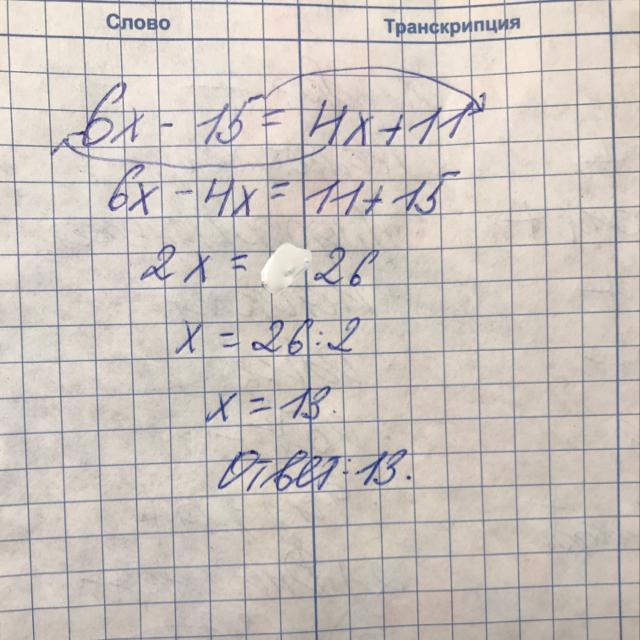 Слово Транскрипция
6x - 15 = 4x + 11
6x - 4x = 11 + 15
2x = 26
x = 26 : 2
x = 13.
Ответ: 13.